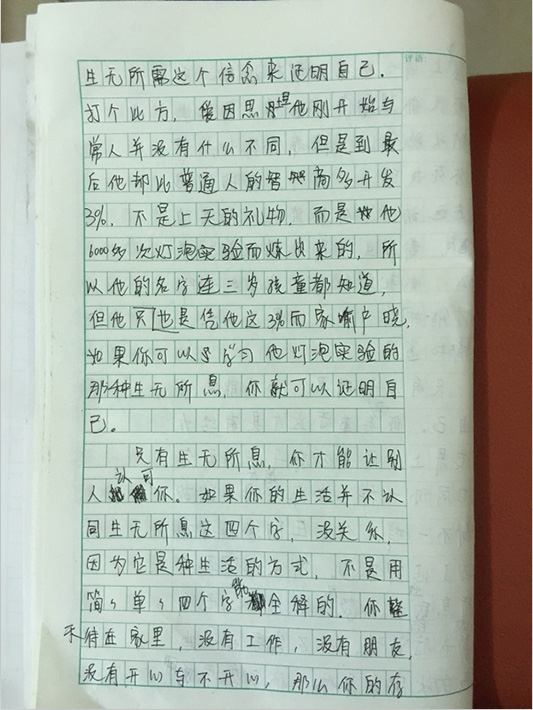 评语:
生无所需这个信念来证明自己.
打个比方, 爱因思坦他刚开始与
常人并没有什么不同, 但是到最
后他却比普通人的智商多开发
3%. 不是上天的礼物, 而是他
6000多次灯泡实验而炼出来的, 所
以他的名字连三岁孩童都知道,
但他只也是凭他这3%而家喻户晓,
如果你可以学习他灯泡实验的
那种生无所息, 你就可以证明自
己。
只有生无所息, 你才能让别
人认可你. 如果你的生活并不认
同生无所息这四个字, 没关系,
因为它是种生活的方式, 不是用
简々单々四个字能全解的. 你整
天待在家里, 没有工作, 没有朋友,
没有开心与不开心, 那么你的存